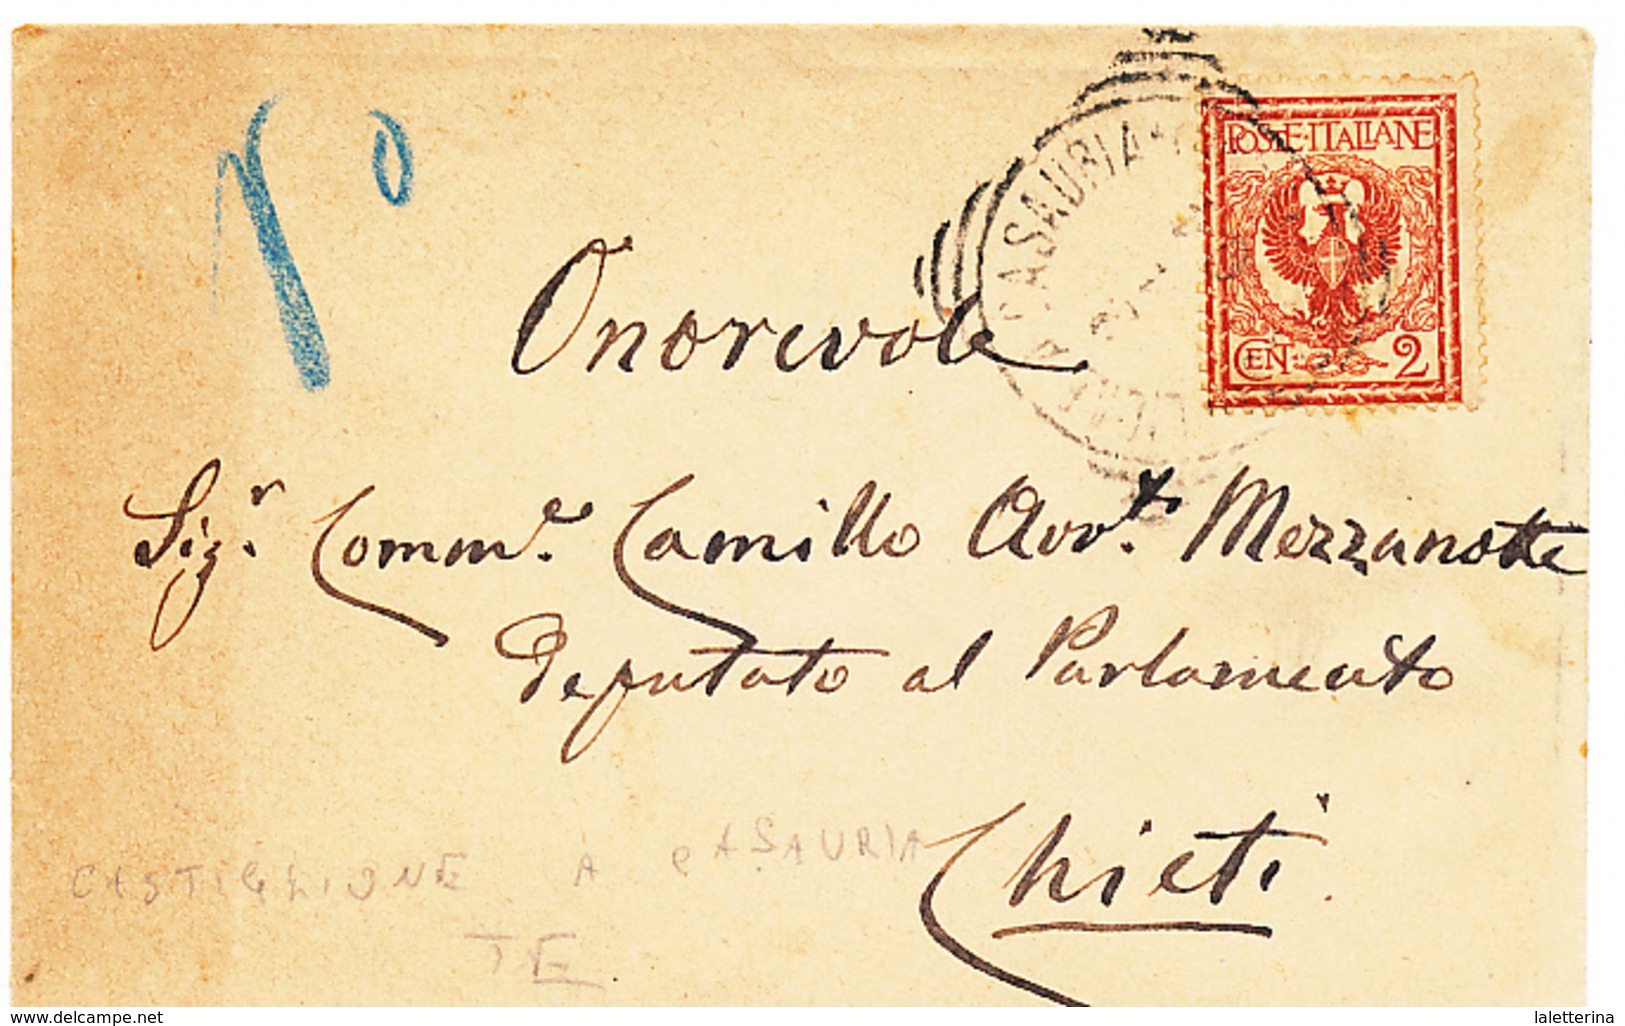 POSTE·ITALIANE
CEN· 2
CASAURIA
Onorevole
Sig.r Comm.e Camillo Avv.t Mezzanotte
Deputato al Parlamento
Chieti
CASTIGLIONE A CASAURIA
TE
www.delcampe.net
laletterina